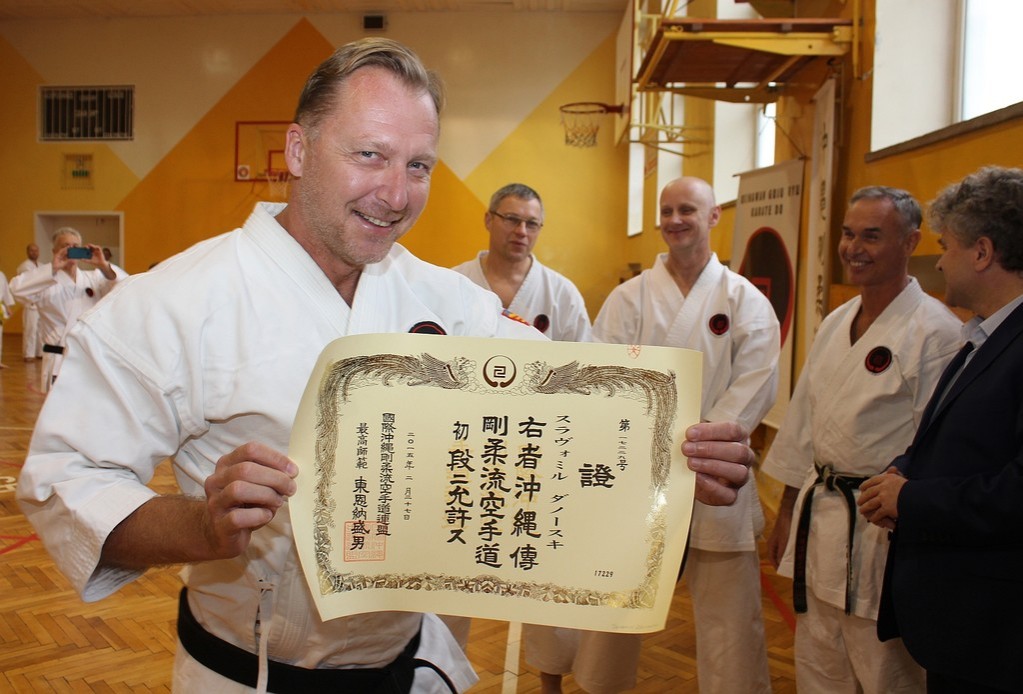 第一七二二九号
證
スラヴォミル ダノースキ
右者沖縄傳
剛柔流空手道
初段ニ允許ス
二〇一五年 二月二十七日
國際沖縄剛柔流空手道連盟
最高師範 東恩納盛男
17229
OKINAWAN GOJU RYU
KARATE DO